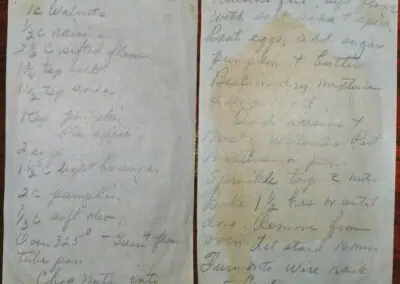 1c Walnuts
1/2 c raisins
2 1/2 c sifted flour
tsp salt
1 1/2 tsp soda
1 tsp pumpkin
Pie spice
2 eggs
1 1/2 c light br sugar
2 c pumpkin
1/3 c soft oleo
Oven 325° - Grease & flour
tube pan
Chop Nuts
with soda &
Beat eggs, add sugar
pumpkin & butter
Beat in dry mixture
Add raisins &
most walnuts Put
mixture in pan
Sprinkle top c nuts
Bake 1 1/2 hrs or until
done. Remove from
oven Let stand
Turn onto wire rack